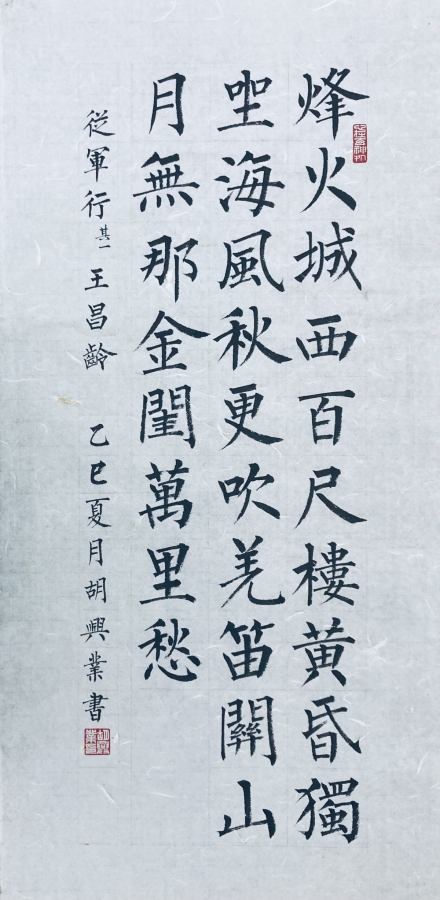 烽火城西百尺樓黃昏獨
坐海風秋更吹羌笛關山
月無那金閨萬里愁
從軍行其一 王昌齡 乙巳夏月胡興業書